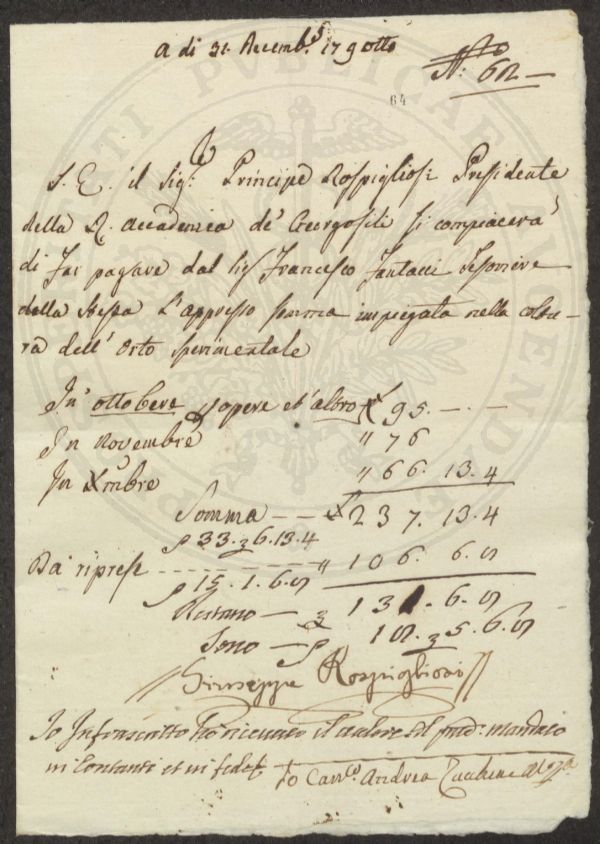 A di 31. Decemb.e 179otto
N.o 62
64
S. E. il Sig.r Principe Rospigliosi Presidente
della R. Accademia de' Georgofili si compiacerà
di far pagare dal Sig.r Francesco Fantacci Tesoriere
della stessa l'appresso somma impiegata nella coltu-
ra dell'Orto sperimentale
In ottobere p opere et altro £ 95. — . —
In Novembre " 76
In Xmbre " 66. 13. 4
Somma — — £ 237. 13. 4
p 33. 3 6. 13. 4
Da riprese " 106. 6. 8
p 15. 1. 6. 8
Restano — £ 131. 6. 8
Sono — p 18. 3 5. 6. 8
Giuseppe Rospigliosi
Io Infrascritto ho ricevuto il valore del pred: mandato
in Contanti et in fede
Io Can.co Andrea Zucchini
PUBLICAE